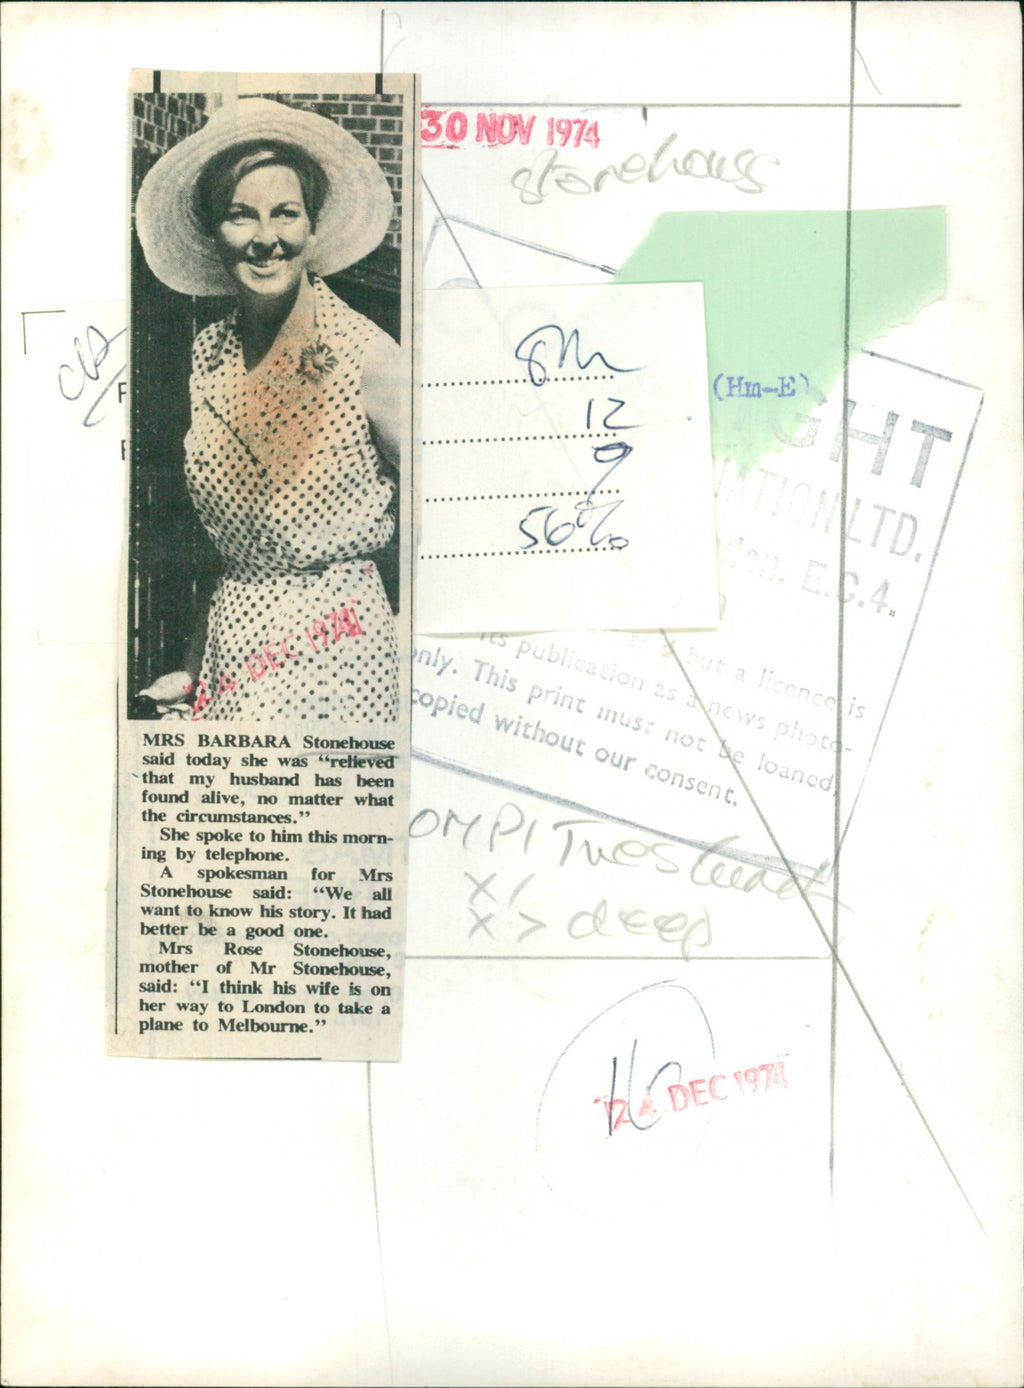 30 NOV 1974
stonehouse
(Hm-E)
12
9
56%
GHT
LTD.
E.C.4.
but a licence is
its publication as a news photo-
only. This print must not be loaned,
copied without our consent.
24 DEC 1974
MRS BARBARA Stonehouse
said today she was “relieved
that my husband has been
found alive, no matter what
the circumstances.”
She spoke to him this morn-
ing by telephone.
A spokesman for Mrs
Stonehouse said: “We all
want to know his story. It had
better be a good one.
Mrs Rose Stonehouse,
mother of Mr Stonehouse,
said: “I think his wife is on
her way to London to take a
plane to Melbourne.”
deep
24 DEC 1974